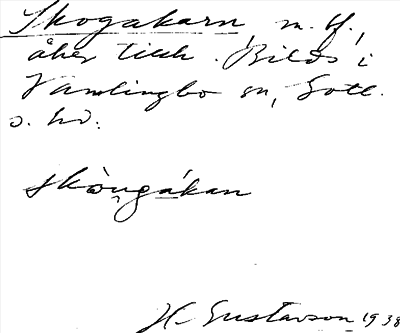 Skogakarn m. fl.,
åker tillh. Bilds i
Vamlingbo sn, Gotl.
s. hd.
skòu̯gákan
H. Gustavson 1938